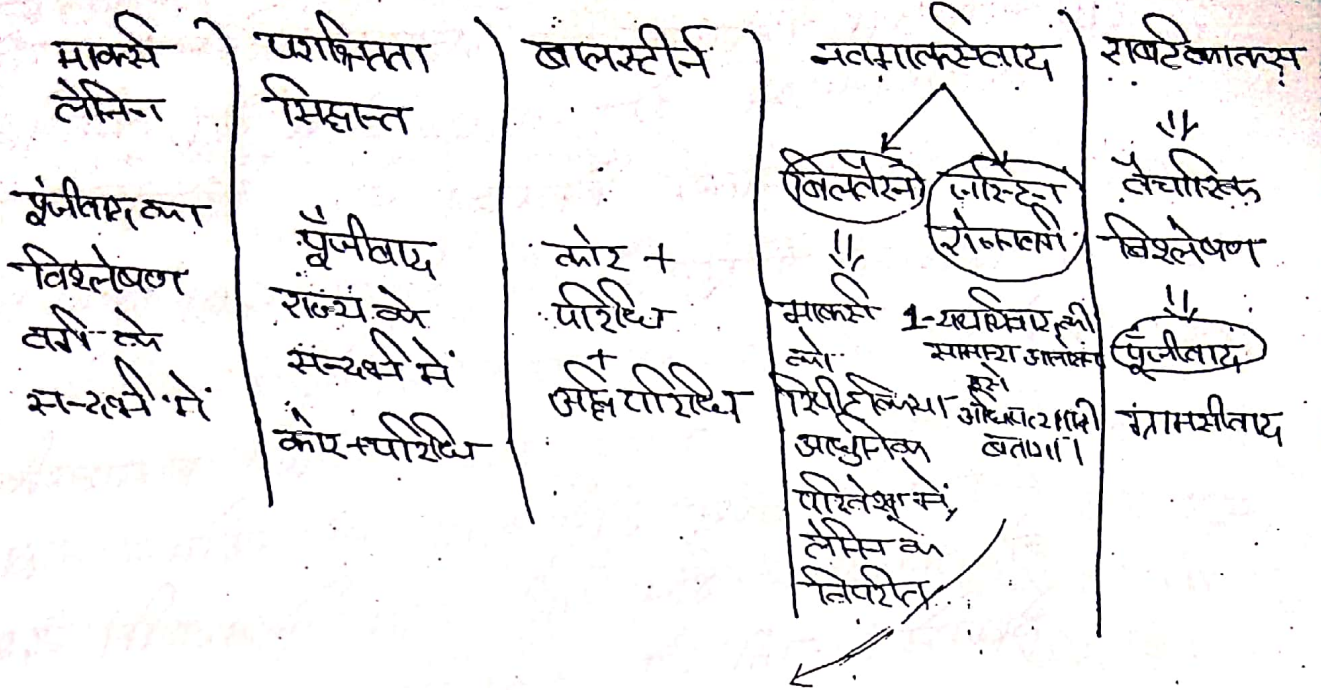 मार्क्स
लेनिन
पूंजीवाद का
विश्लेषण
वर्ग के
सन्दर्भ में
पराश्रितता
सिद्धान्त
पूँजीवाद
राज्य के
सन्दर्भ में
कोर + परिधि
वालस्टीर्न
कोर +
परिधि
+
अर्द्ध परिधि
नवमार्क्सवाद
बिलवैरेन
मार्क्स
को
रिपीट किया
आधुनिक
परिवेश में,
लेनिन के
विपरीत
जस्टिन
रोजनवर्ग
1- यथार्थवाद की
सामान्य आलोचना
इसे
आधिपत्यवादी
बताया।
राबर्ट काक्स
वैचारिक
विश्लेषण
पूँजीवाद
ग्रामसीवाद